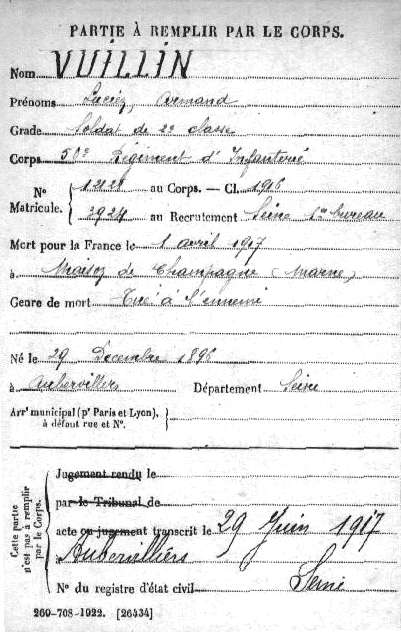 PARTIE À REMPLIR PAR LE CORPS.
Nom VUILLIN
Prénoms Lucien, Armand
Grade Soldat de 2e classe
Corps 50e Régiment d'Infanterie
No Matricule. { 12128 au Corps. — Cl. 1916
3924 au Recrutement Seine 1er bureau
Mort pour la France le 1 avril 1917
à Maison de Champagne (Marne)
Genre de mort Tué à l'ennemi
Né le 29 Décembre 1896
à Aubervilliers Département Seine
Arrt municipal (pr Paris et Lyon), à défaut rue et No. }
Cette partie n'est pas à remplir par le Corps.
Jugement rendu le
par le Tribunal de
acte ou jugement transcrit le 29 Juin 1917
à Aubervilliers
Seine
No du registre d'état civil
260-708-1922. [26434]